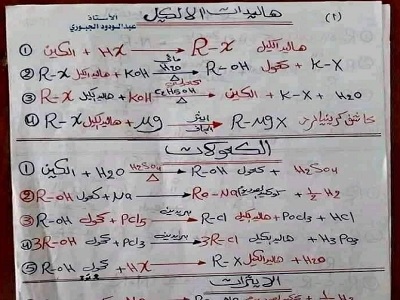 (٢) هاليدات الالكيل الأستاذ
عبدالودود الجبوري
① الكين + HX → R-X هاليد الكيل
② R-X هاليد الكيل + KOH مائي H2O Δ → R-OH كحول + K-X
③ R-X هاليد الكيل + KOH C2H5OH Δ → الكين + K-X + H2O
④ R-X هاليد الكيل + Mg ايثر → R-MgX كاشف كرينيارد
الكحولات
① الكين + H2O H2SO4 Δ → R-OH كحول + H2SO4
② R-OH كحول + Na → RO-Na + ½ H2
③ R-OH كحول + PCl5 بيريدين → R-Cl هاليد الكيل + POCl3 + HCl
④ 3R-OH كحول + PCl3 بيريدين → 3R-Cl هاليد الكيل + H3PO3
⑤ R-OH كحول + HX → R-X هاليد الكيل + H2O
الايثرات